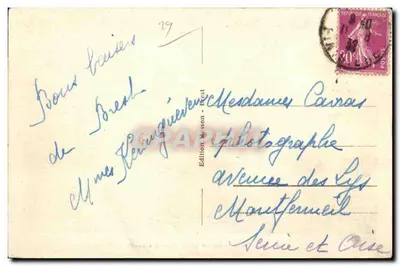 29
Bons baisers
de Brest
Mmes
Edition
Brest
Mesdames
photographe
avenue des Lys
Montfermeil
Seine et Oise